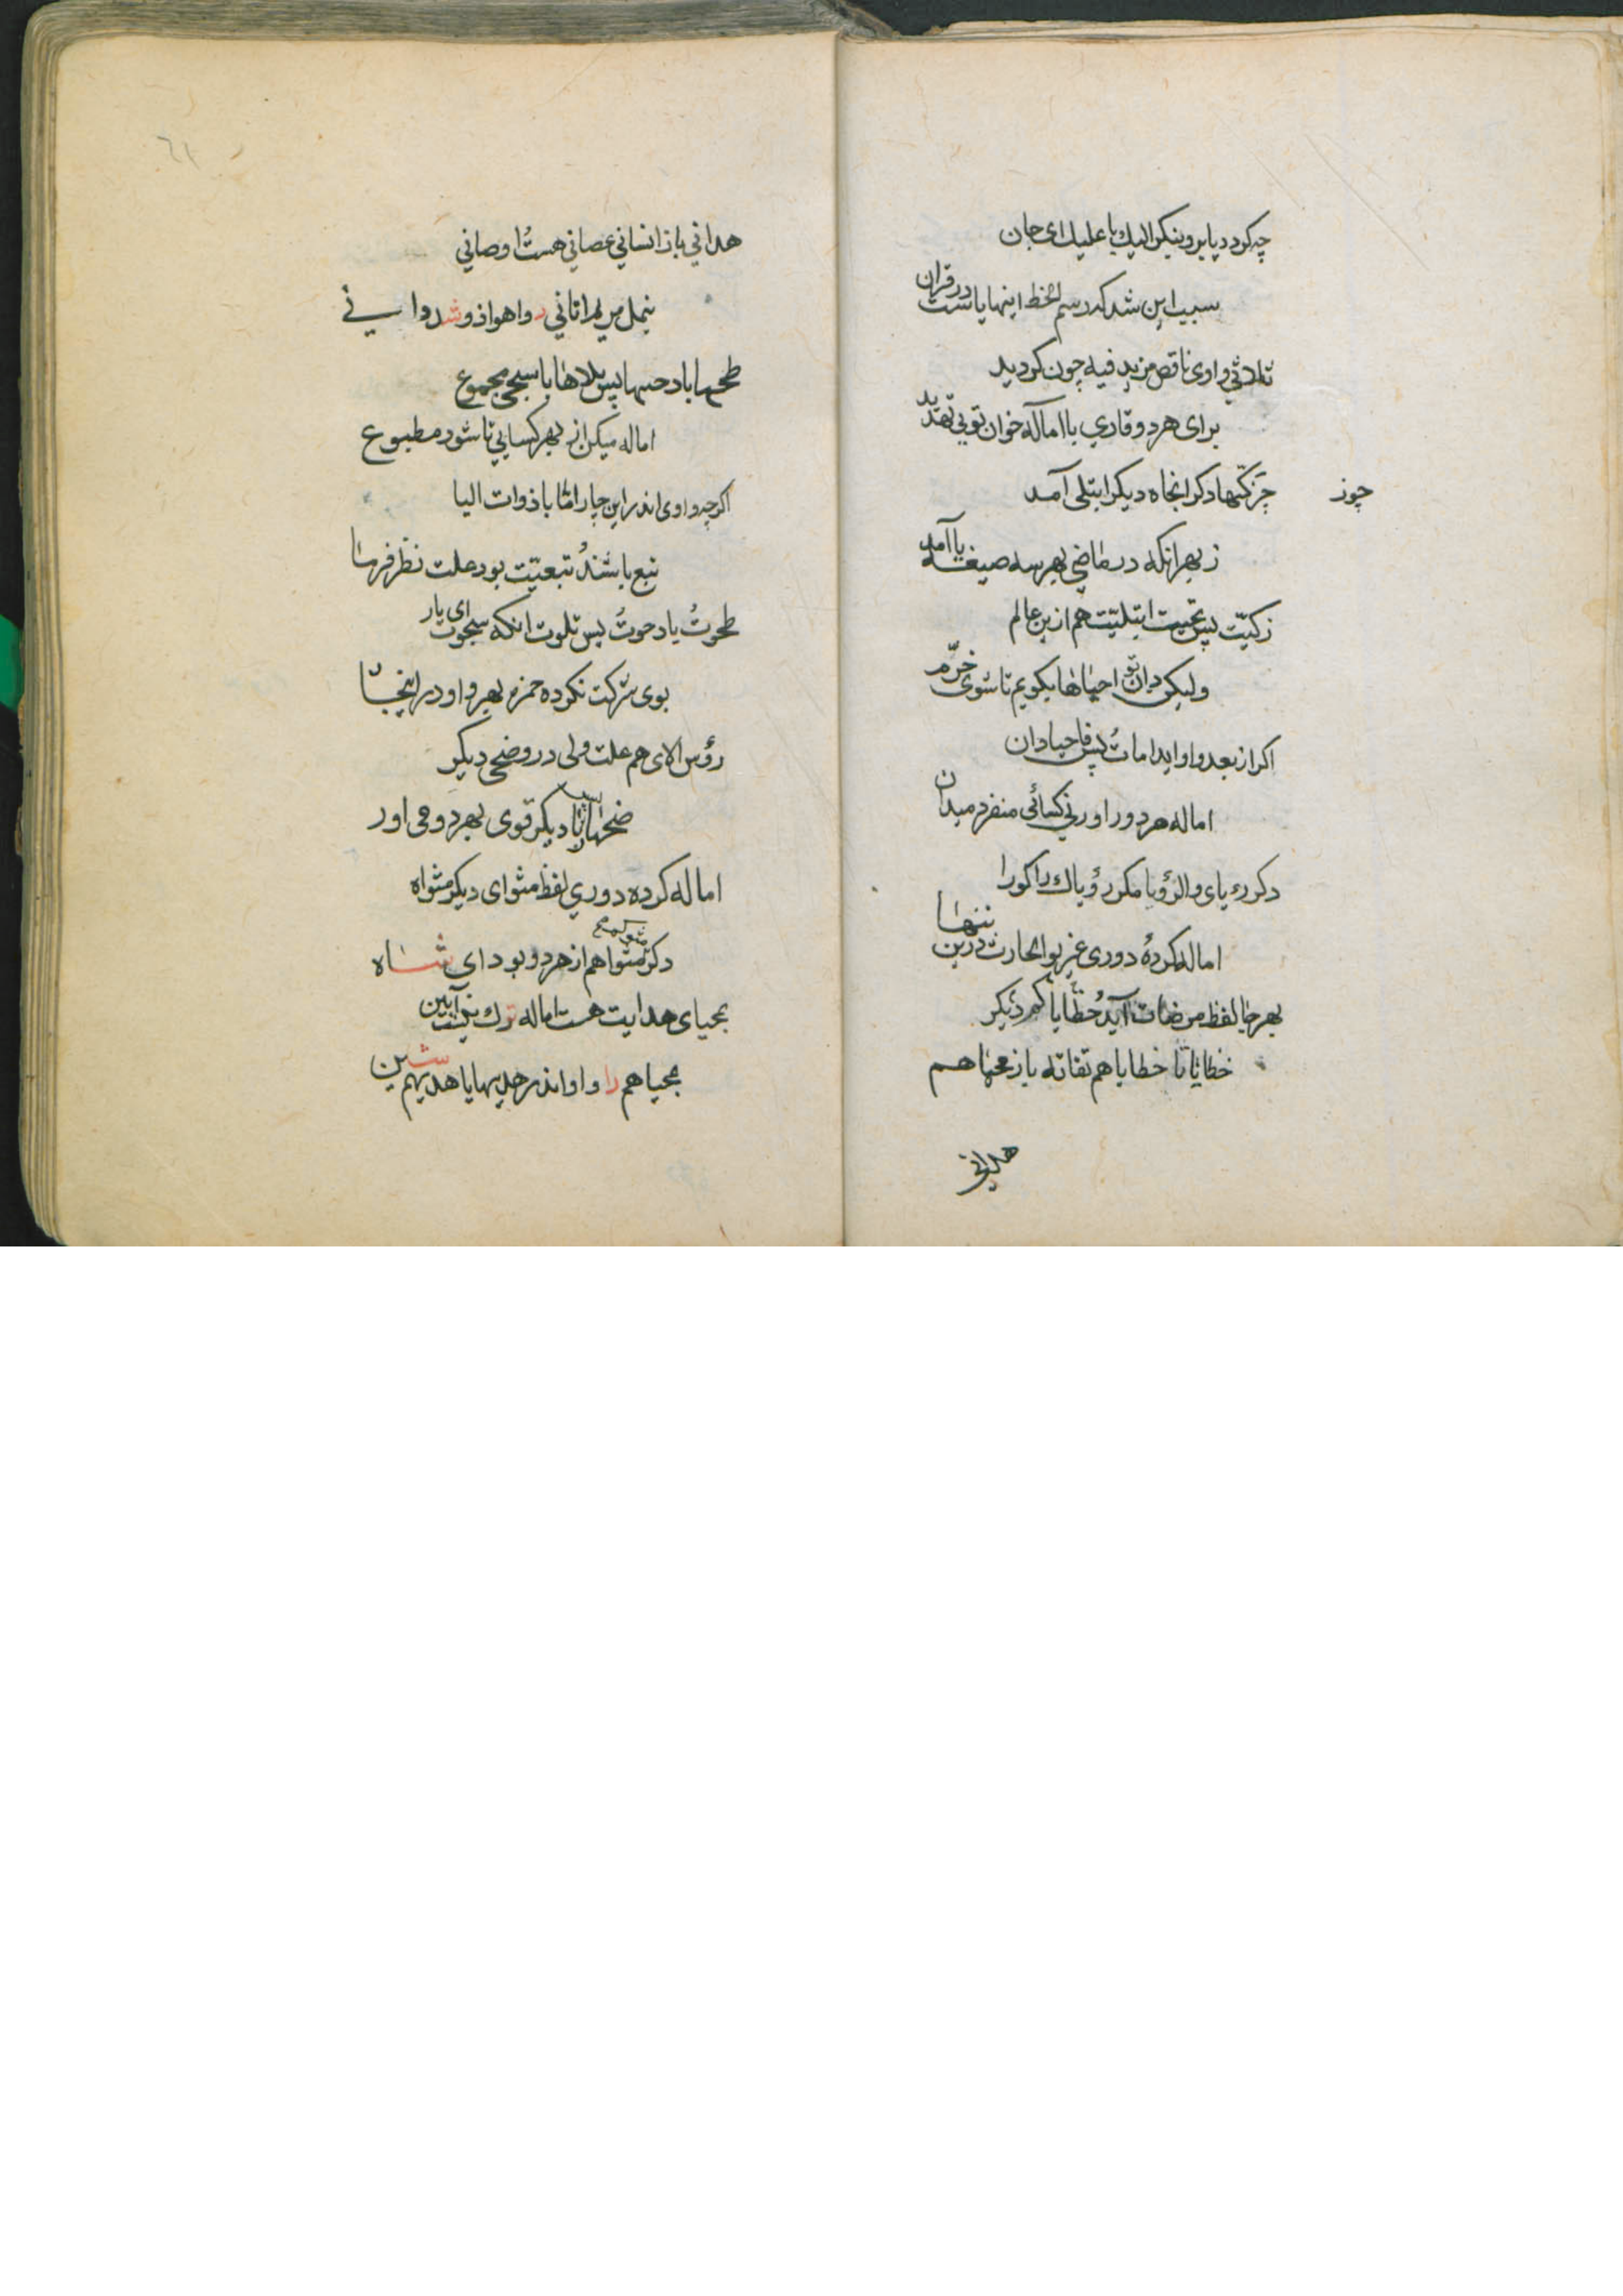 چه کردد یا برو بنیکر الیك یا علیك ای جان
سبب این شد که در رسم الخط اینها یاست در قران
ثلاثی واوی ناقص مزید فیه چون کردید
برای هر دو قاری با اماله خوان تو بی تهدید
چو زکیها دکر انجاه دیکر ابتلی آمد
چوز
ز بهر انکه در ماضی بهر سه صیغه یا آمد
زکیّت پس نجیت ابتلیت هم ازین عالم
ولیکن دان تو احیاها بکویم تا شوی خرّم
اکر از بعد واو اید امات پس فاحیا دان
اماله هر دو را ورنی کسائی منفرد میدان
دکر رءیای والرؤیا مکرر رؤیاك را کورا
اماله کردهٔ دوری غیر بو الحارث درین تنها
بهر جا لفظ مرضات آید خطایا کم دیکر
خطایانا خطایاهم تقاته باز محیاهم
هدانی
هدانی باز انسانی عصانی هست اوصانی
بنمل مریم اتانی د واهوا ذو شد دانی
طحیها با دحیها پس تلاها با سجی مجموع
اماله میکن از بهر کسایی تا شود مطبوع
اکرچه واوی اند این چار امّا با ذوات الیا
تبع باشند تبعیّت بود علت نظر فرما
طحوت یا دحوت پس تلوت انکه سجوت ای یار
بوی شرکت نکرده حمزه بهر واو در اینجا
رؤس الای هم علت ولی در وضحی دیکر
ضحیها دیکر قوی بهر دو می اور
اماله کرده دوری لفظ مثوای دیکر مثواه
دکر مثوا هم از هر دو بود ای شاه
محیای هدایت هست اماله ترك نیست
محیاهم را واو اندر حلیها یا هدیهم شین